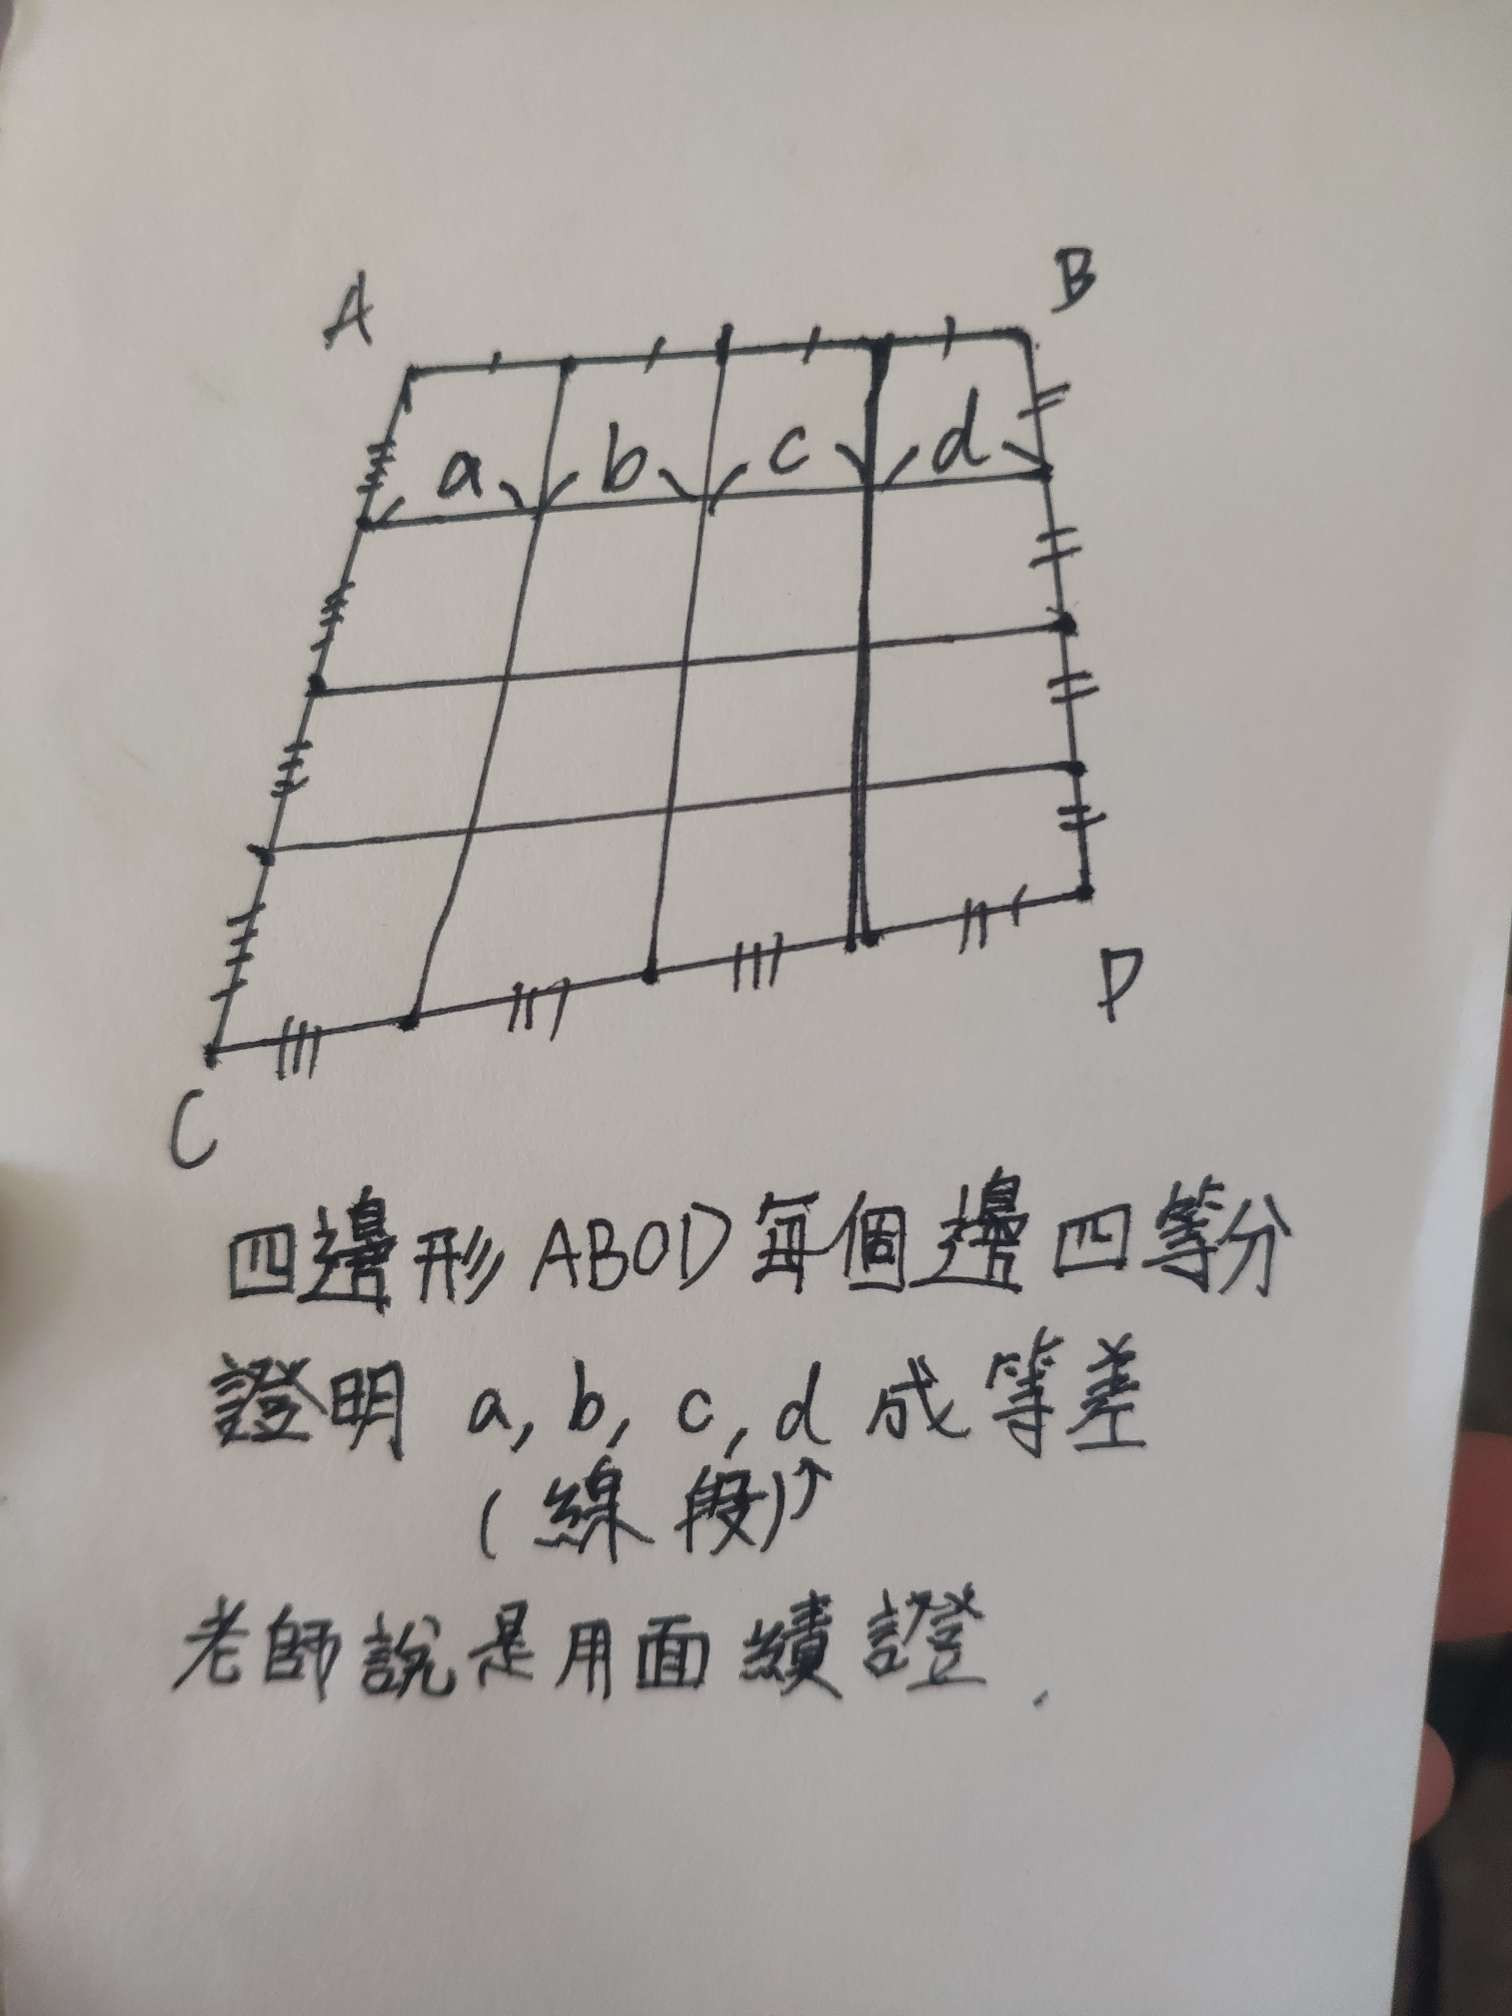 A
B
a b c d
D
C
四邊形ABCD每個邊四等分
證明 a, b, c, d 成等差
(線段)↑
老師說是用面績證.